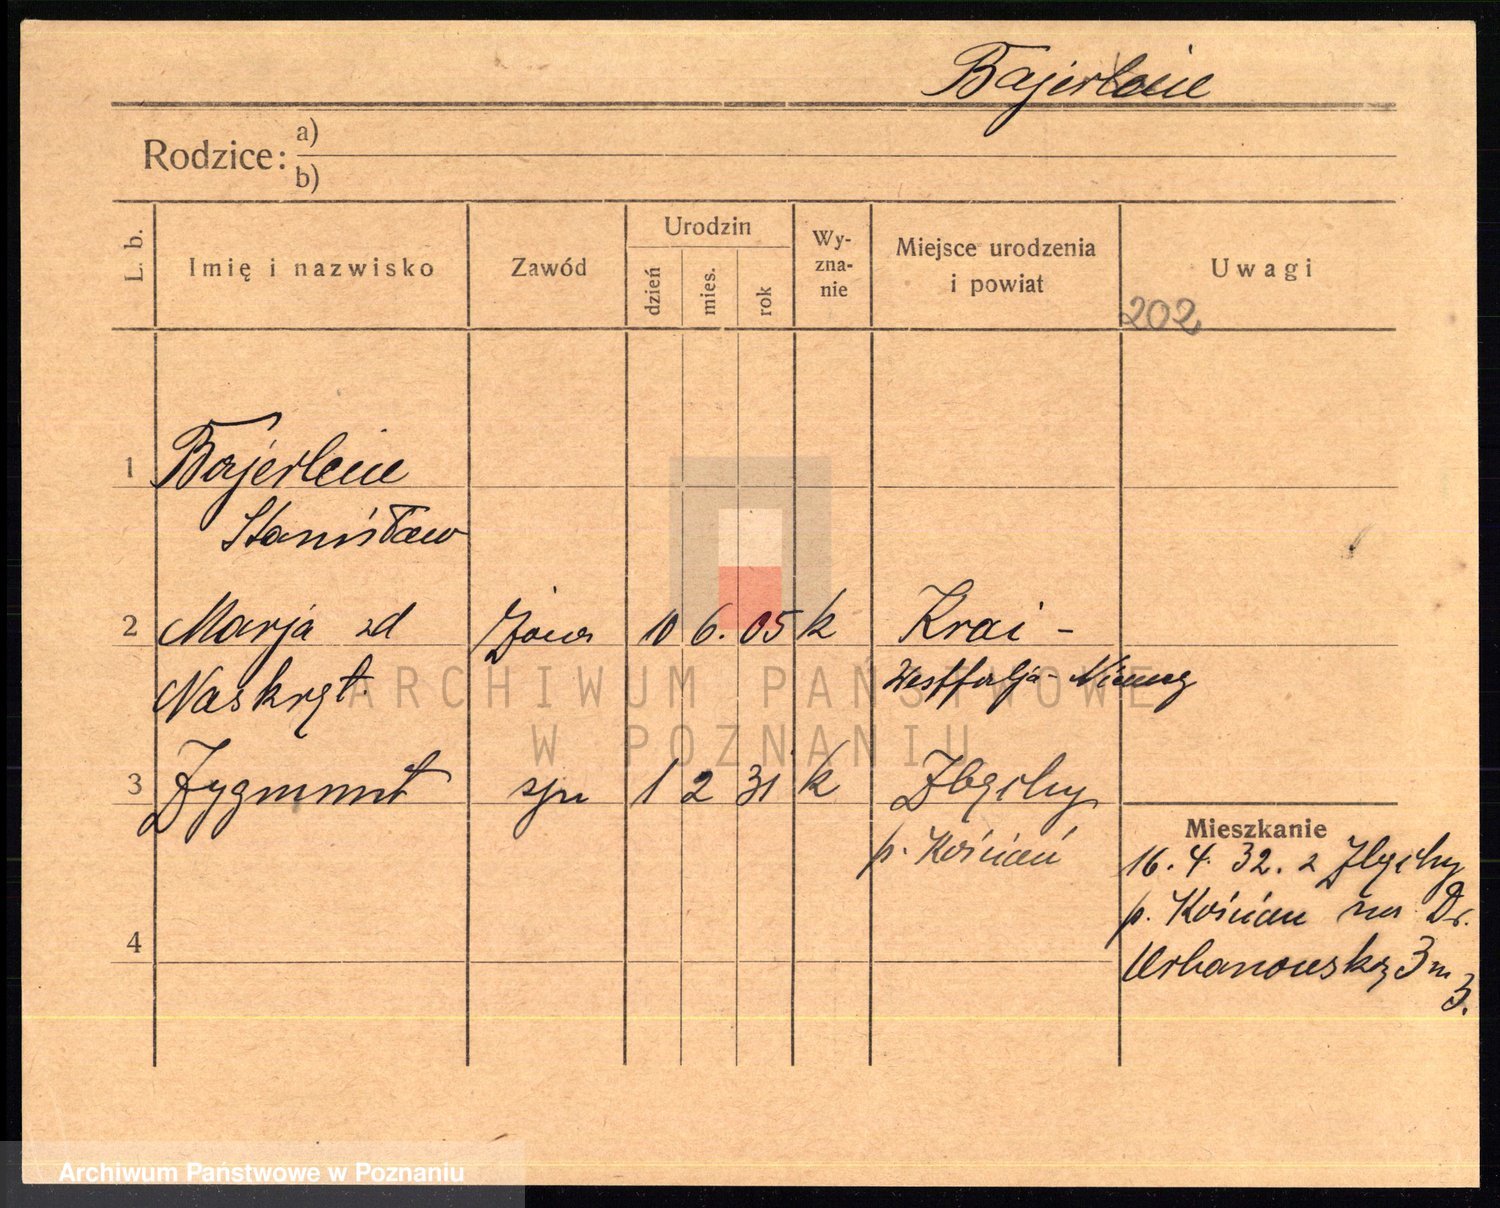 Bajerlein
Rodzice: a)
b)
L. b.
Imię i nazwisko
Zawód
Urodzin
dzień
mies.
rok
Wy-
zna-
nie
Miejsce urodzenia
i powiat
Uwagi
202
1 Bajerlein
Stanisław
2 Marja zd żona 10 6. 05 k Krai -
Naskręt. Westfalja - Niemcy
3 Zygmunt syn 1 2 31 k Zbęchy
p. Kościań
4
Mieszkanie
16. 4. 32. z Zbęchy
p. Kościan na Dr.
Urbanowską 3 m
3.
ARCHIWUM PAŃSTWOWE
W POZNANIU
Archiwum Państwowe w Poznaniu